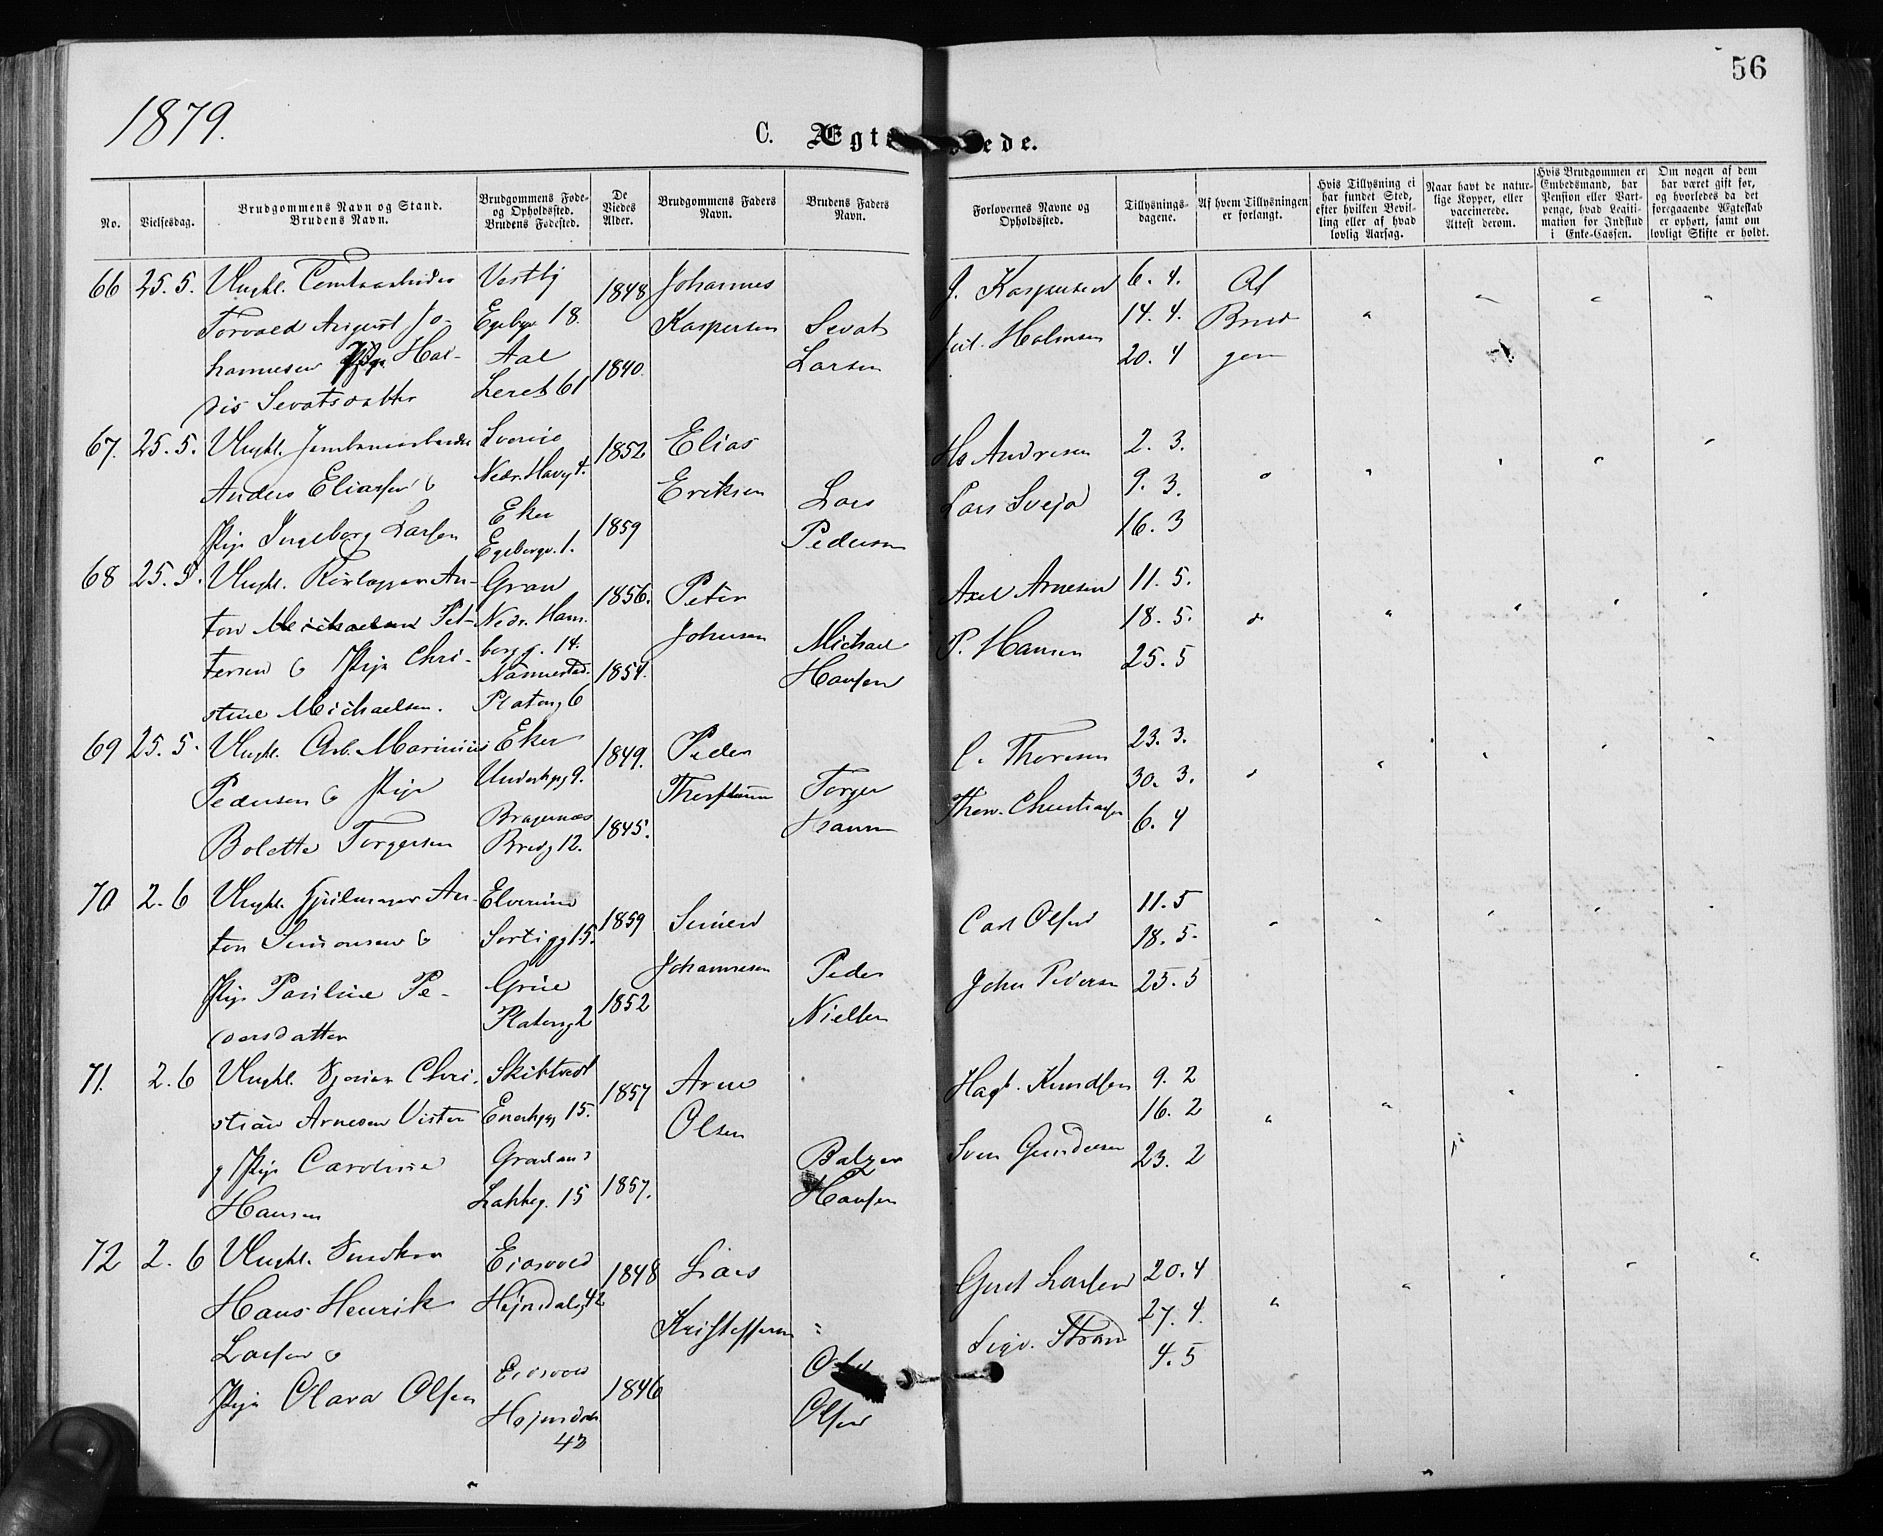 56
1879.
C. Ægt ede.
No.
Vielsesdag.
Brudgommens Navn og Stand.
Brudens Navn.
Brudgommens Føde-
og Opholdssted.
Brudens Fødested.
De
Viedes
Alder.
Brudgommens Faders
Navn.
Brudens Faders
Navn.
Forlovernes Navne og
Opholdssted.
Tillysnings-
dagene.
Af hvem Tillysningen
er forlangt.
Hvis Tillysning ei
har fundet Sted,
efter hvilken Bevil-
ling eller af hvad
lovlig Aarsag.
Naar havt de natur-
lige Kopper, eller
vaccinerede.
Attest derom.
Hvis Brudgommen er
Embedsmand, har
Pension eller Vart-
penge, hvad Legiti-
mation for Indskud
i Enke-Cassen.
Om nogen af dem
har været gift før,
og hvorledes da det
foregaaende Ægteskab
er ophørt, samt om
lovligt Skifte er holdt.
66 25.5. Ungkl. Vestby 1848 Johannes J. Kaspersen 6. 4. Af
Torvald August Jo- Egebgv 18. Kaspersen Sevat Jul. Holmsen 14. 4. Brud
hannesen Pige Hal- Aal 1840 Larsen 20. 4 gom
Sevatsdatter Leret 61
67. 25.5. Ungkl. Sverige 1852 Elias Hs Andresen 2. 3.
Anders Eliassen & Eriksen Lars Lars Svejo 9. 3.
Pige Ingeborg Larsen Eker 1859 Pedersen 16. 3
Egebergv. 1.
68 25.5. Ungkl. An- Gran 1856. Peter Axel Arnesen 11. 5.
ton Michaelsen Pet- Nedr. Ham- Johnsen Michael P. Hansen 18. 5.
tersen & Pige Chri- borg g. 14. 1854. Hansen 25. 5
Nannestad
stine Michaelsen. Platoug 6
69 25.5. Ungkl. Arb. Marinius Eker 1849. Peder C. Thoresen 23. 3.
Pedersen & Pige 9. Torger Thorv. 30. 3.
Bragernæs 1845. Hansen 6. 4
Bolette Torgersen Bredg 12.
70 2. 6 Ungkl. An- Elverum 1859 Simen Carl Olsen 11. 5
ton Simonsen & 15. Johannesen Peder 18. 5.
Pige Pauline Pe- Grue 1852 Nielsen John Pedersen 25. 5
dersdatter Platoug 2
71. 2. 6 Ungkl. Chri- Skibtvedt 1857 Arne Hagb. Knudsen 9. 2
stian Arnesen 15. Olsen 16. 2
Pige Caroline Balzer Sven Gundersen 23. 2
Hansen Lakkeg. 15 1857. Hansen
72 2. 6 Ungkl. Snedker Eidsvold 1848 Lars Larsen 20. 4
Hans Henrik Hejmdalsg 42 Kristoffersen 27. 4.
Larsen & Sigv. Strand 4. 5
Pige Clara Olsen Eidsvold 1846
Olsen